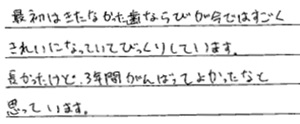 最初はきたなかった歯ならびが今ではすごく
きれいになっていてびっくりしています。
長かったけど、3年間がんばってよかったなと
思っています。